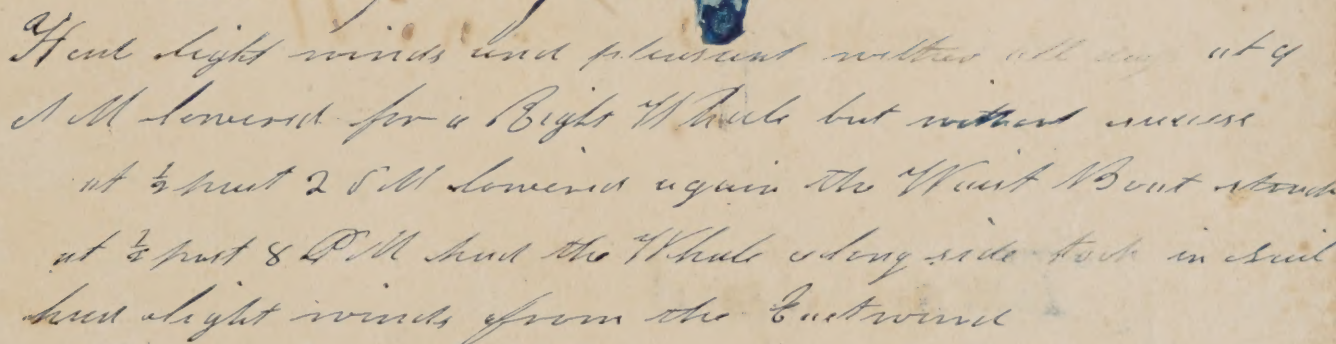 Had light winds and pleasant wether all day at 9
A M lowered for a Right Whale but without success
at ½ past 2 P M lowered again the Waist Boat struck
at ½ past 8 P M had the Whale along side took in sail
had light winds from the Eastwind